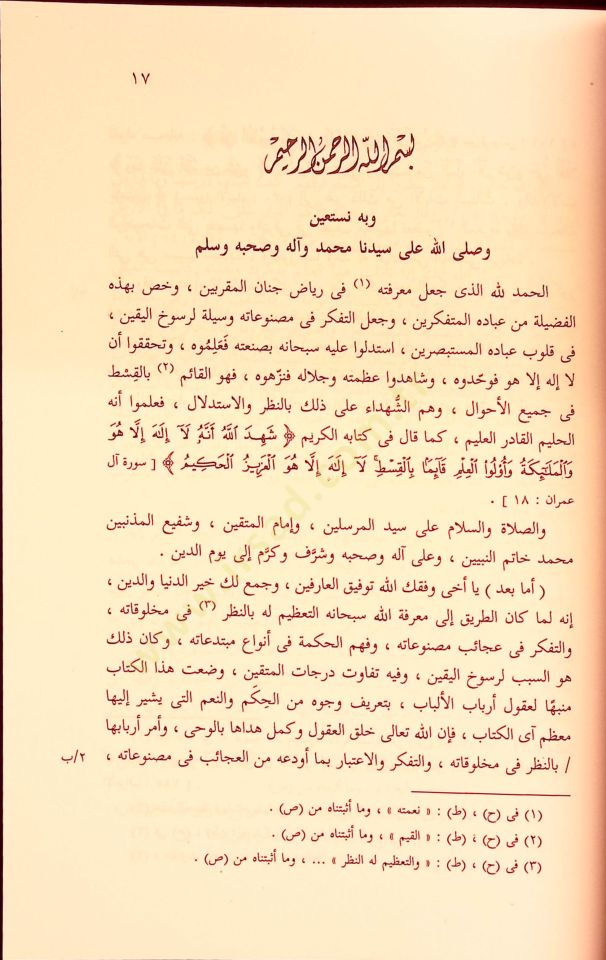 ١٧
بسم الله الرحمن الرحيم
وبه نستعين
وصلى الله على سيدنا محمد وآله وصحبه وسلم
الحمد لله الذى جعل معرفته (١) فى رياض جنان المقربين ، وخص بهذه
الفضيلة من عباده المتفكرين ، وجعل التفكر فى مصنوعاته وسيلة لرسوخ اليقين ،
فى قلوب عباده المستبصرين ، استدلوا عليه سبحانه بصنعته فَعَلِمُوه ، وتحققوا أن
لا إله إلا هو فوحّدوه ، وشاهدوا عظمته وجلاله فنزّهوه ، فهو القائم (٢) بالقِسْط
فى جميع الأحوال ، وهم الشُّهداء على ذلك بالنظر والاستدلال ، فعلموا أنه
الحليم القادر العليم ، كما قال فى كتابه الكريم ﴿ شَهِدَ ٱللَّهُ أَنَّهُۥ لَآ إِلَٰهَ إِلَّا هُوَ
وَٱلْمَلَٰٓئِكَةُ وَأُو۟لُوا۟ ٱلْعِلْمِ قَآئِمًۢا بِٱلْقِسْطِ ۚ لَآ إِلَٰهَ إِلَّا هُوَ ٱلْعَزِيزُ ٱلْحَكِيمُ ﴾ [ سورة آل
عمران : ١٨ ] .
والصلاة والسلام على سيد المرسلين ، وإمام المتقين ، وشفيع المذنبين
محمد خاتم النبيين ، وعلى آله وصحبه وشرَّف وكرَّم إلى يوم الدين .
( أما بعد ) يا أخى وفقك الله توفيق العارفين ، وجمع لك خير الدنيا والدين ،
إنه لما كان الطريق إلى معرفة الله سبحانه التعظيم له بالنظر (٣) فى مخلوقاته ،
والتفكر فى عجائب مصنوعاته ، وفهم الحكمة فى أنواع مبتدعاته ، وكان ذلك
هو السبب لرسوخ اليقين ، وفيه تفاوت درجات المتقين ، وضعت هذا الكتاب
منبهًا لعقول أرباب الألباب ، بتعريف وجوه من الحِكَم والنعم التى يشير إليها
معظم آى الكتاب ، فإن الله تعالى خلق العقول وكمل هداها بالوحى ، وأمر أربابها
/ بالنظر فى مخلوقاته ، والتفكر والاعتبار بما أودعه من العجائب فى مصنوعاته ، ٢/ب
(١) فى (ح) ، (ط) : « نعمته » ، وما أثبتناه من (ص) .
(٢) فى (ح) ، (ط) : « القيم » ، وما أثبتناه من (ص) .
(٣) فى (ح) ، (ط) : « والتعظيم له النظر » ... ، وما أثبتناه من (ص) .